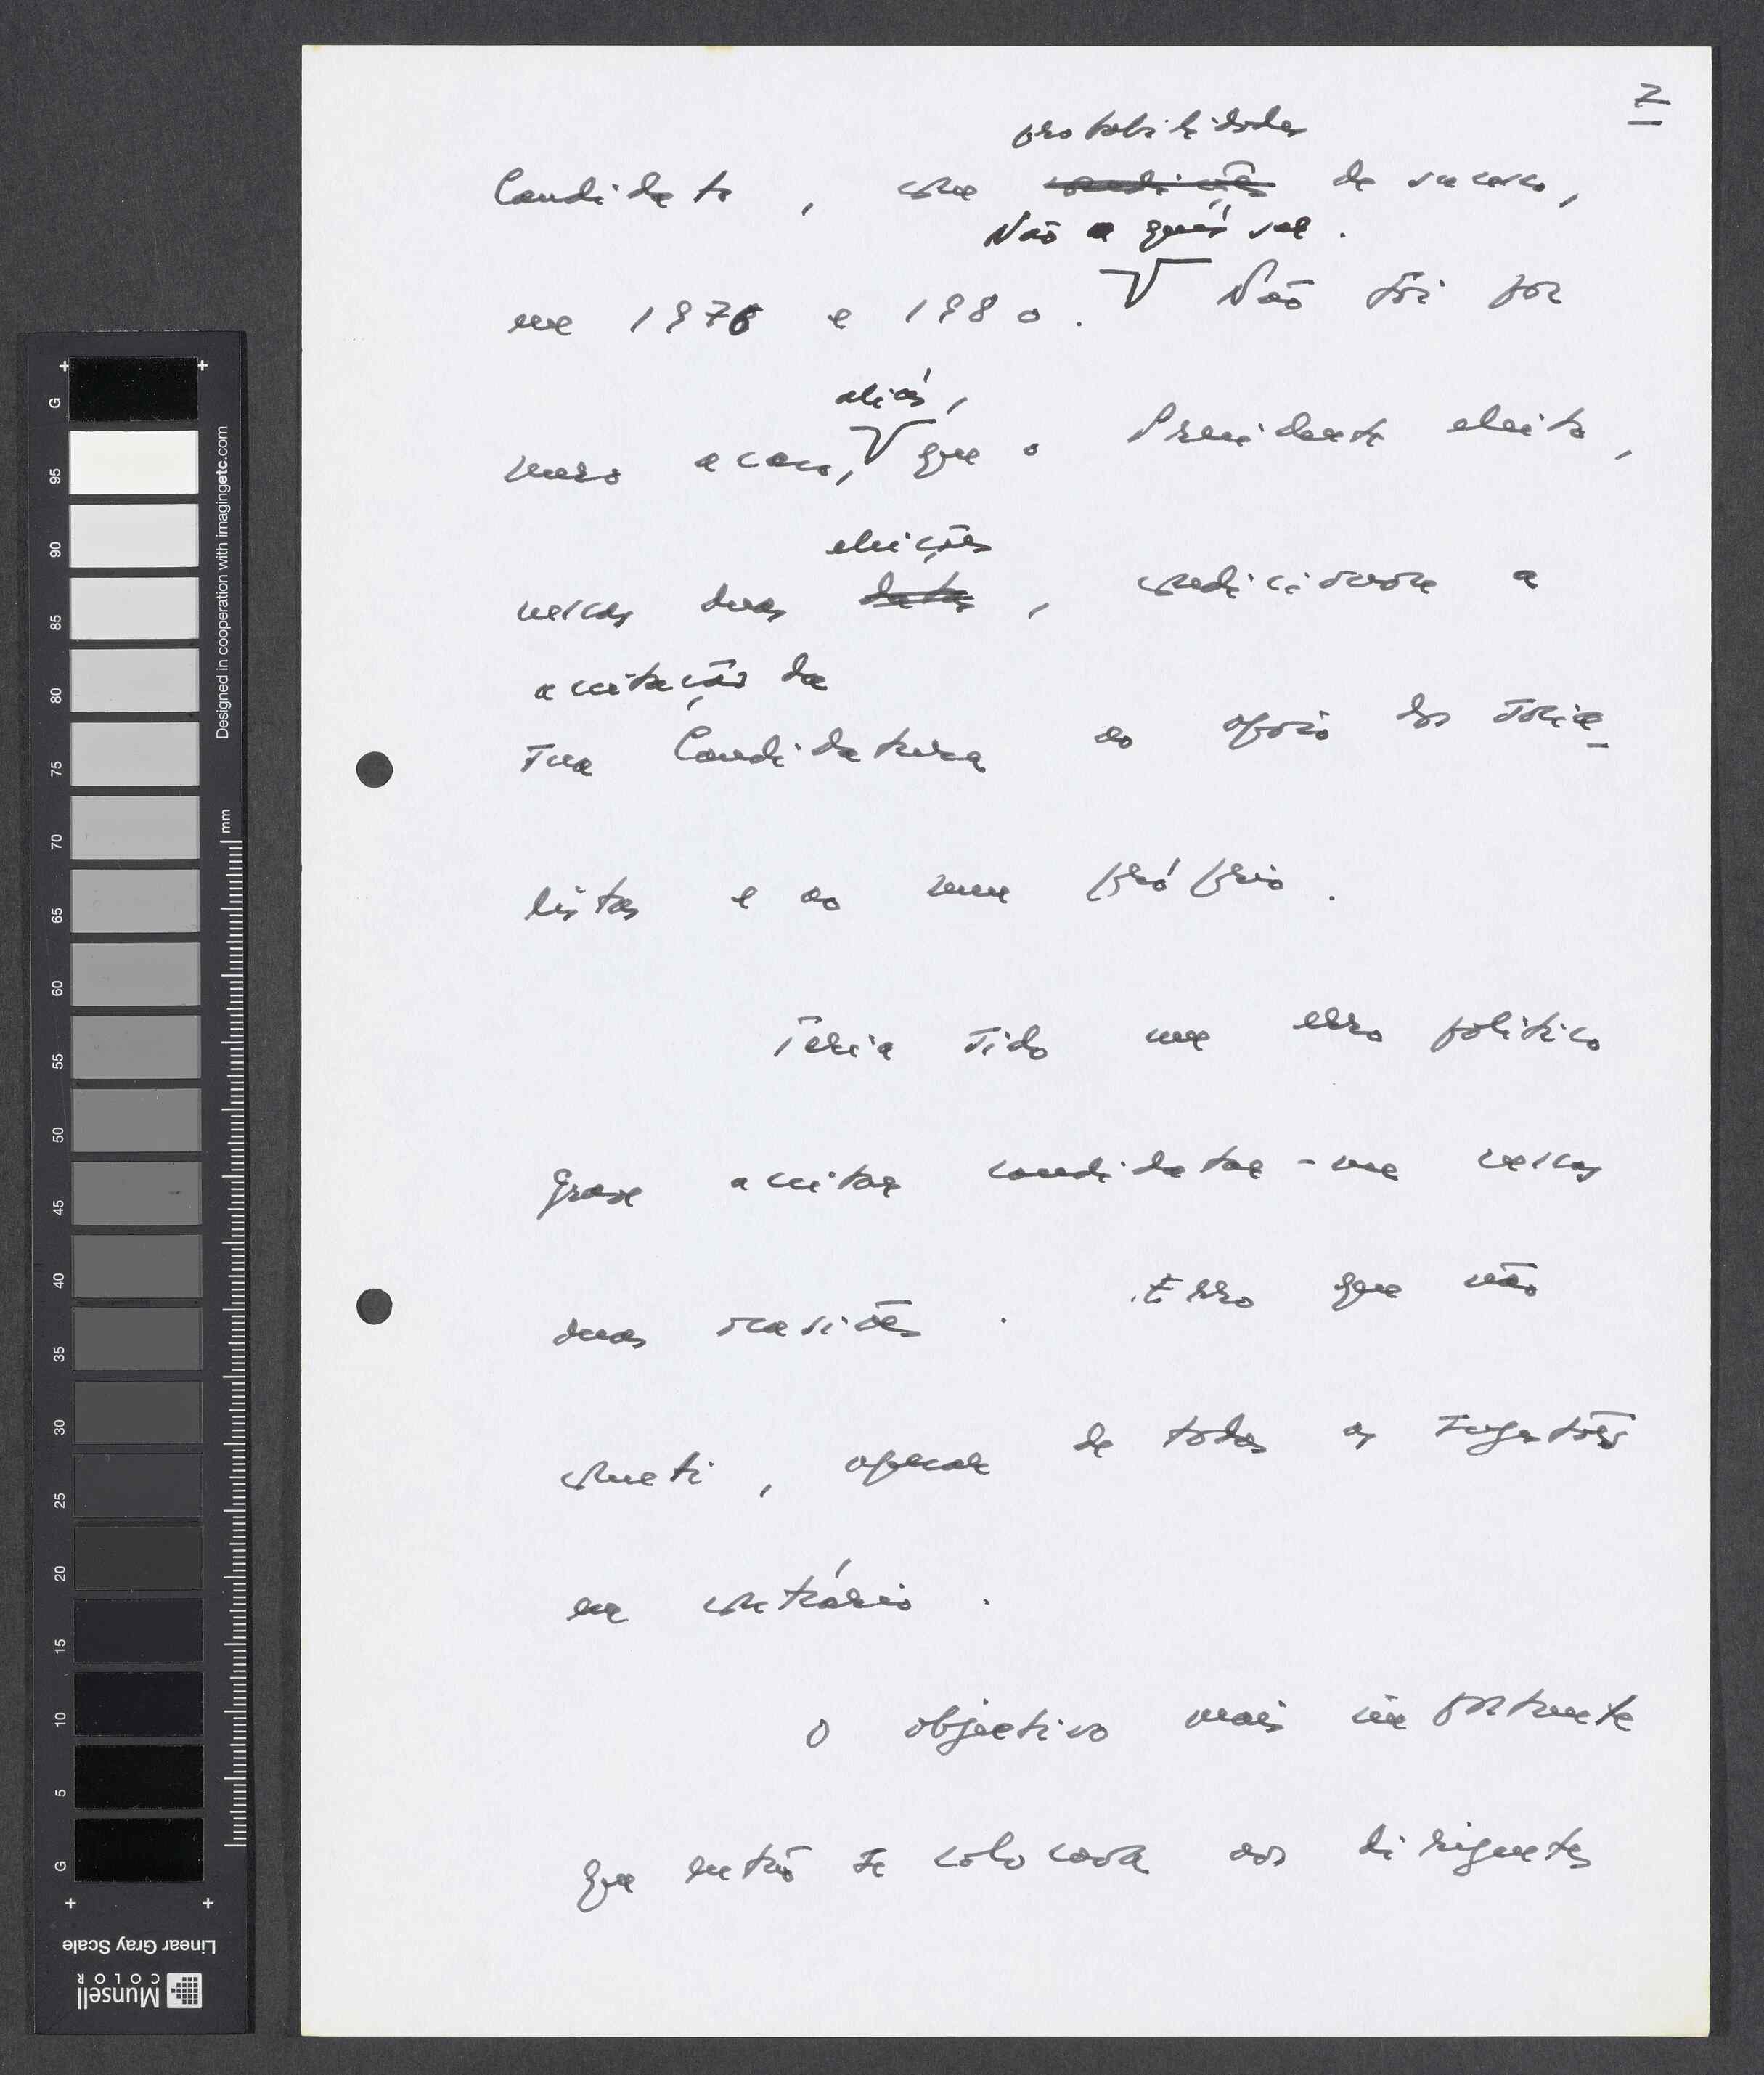 7
probabilidades
Candidato, com condições de sucesso,
Não o quis ser.
em 1976 e 1980. Não foi por
aliás,
mero acaso, que o Presidente eleito,
eleições
nessas duas datas, condicionou a
aceitação da
sua Candidatura ao apoio dos Socia-
listas e ao meu próprio.
Teria sido um erro político
grave aceitar candidatar-me nessas
duas ocasiões. Erro que não
cometi, apesar de todas as sugestões
em contrário.
O objectivo mais importante
que então se colocava aos dirigentes
G
95
90
85
80
75
70
65
60
55
50
45
40
35
30
25
20
15
10
5
G
mm
Designed in cooperation with imagingetc.com
Linear Gray Scale
Munsell
COLOR